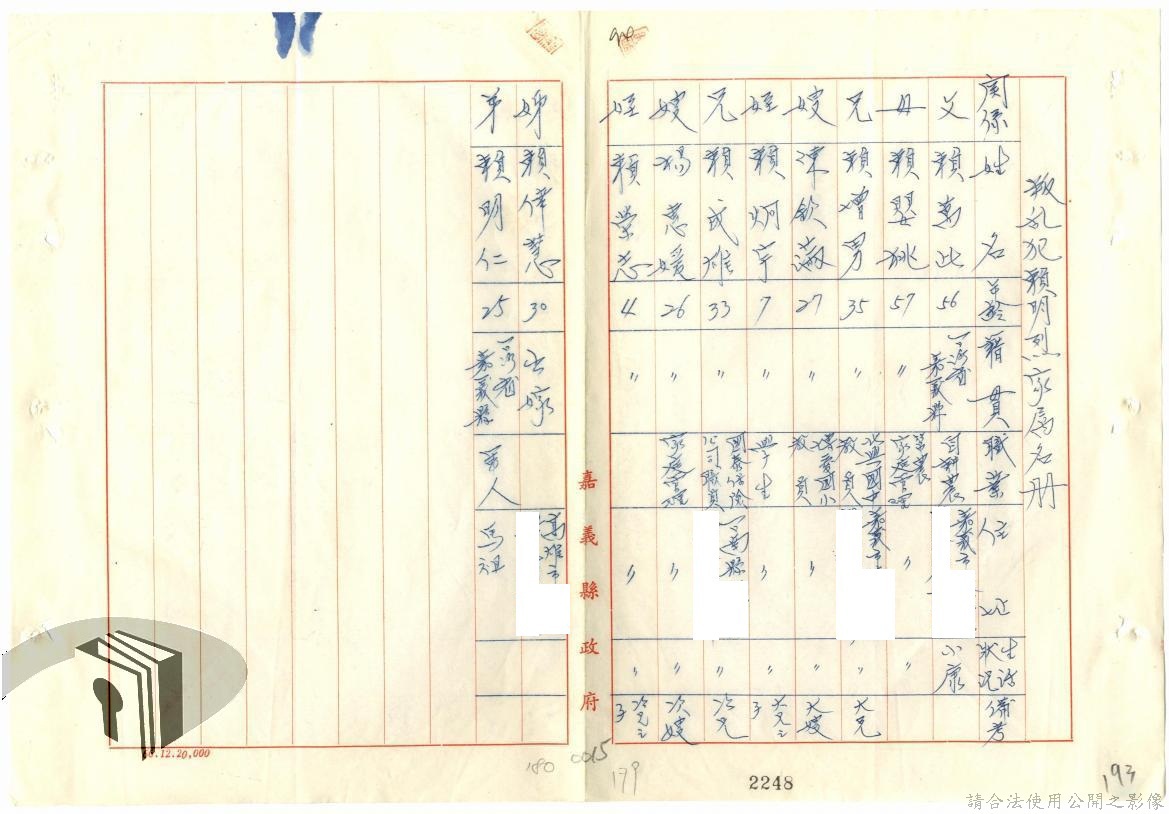 叛亂犯賴明烈家屬名册
關係 姓名 年齡 籍貫 職業 住址 生活狀況 備考
父 賴萬此 56 台灣省嘉義縣 自耕農 嘉義市 小康
母 賴嬰桃 57 〃 家庭管理 〃 〃
兄 賴增男 35 〃 北興國中教員 嘉義市 〃 大兄
嫂 陳欽滿 27 〃 國小教員 〃 〃 大嫂
姪 賴炯宇 7 〃 學生 〃 〃 大兄之子
兄 賴武雄 33 〃 國泰保險公司職員 台南縣 〃 次兄
嫂 楊惠媛 26 〃 家庭管理 〃 〃 次嫂
姪 賴榮志 4 〃 〃 〃 次兄之子
姊 賴偉慧 30 出嫁 高雄市
弟 賴明仁 25 台灣省嘉義縣 軍人 馬祖
嘉義縣政府
66.12.20,000
180
0015
179
2248
193
請合法使用公開之影像